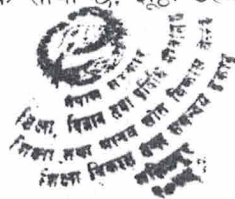 नेपाल सरकार
शिक्षा, विज्ञान तथा प्रविधि मन्त्रालय
शिक्षा तथा मानव स्रोत विकास केन्द्र
शिक्षा विकास तथा समन्वय इकाइ